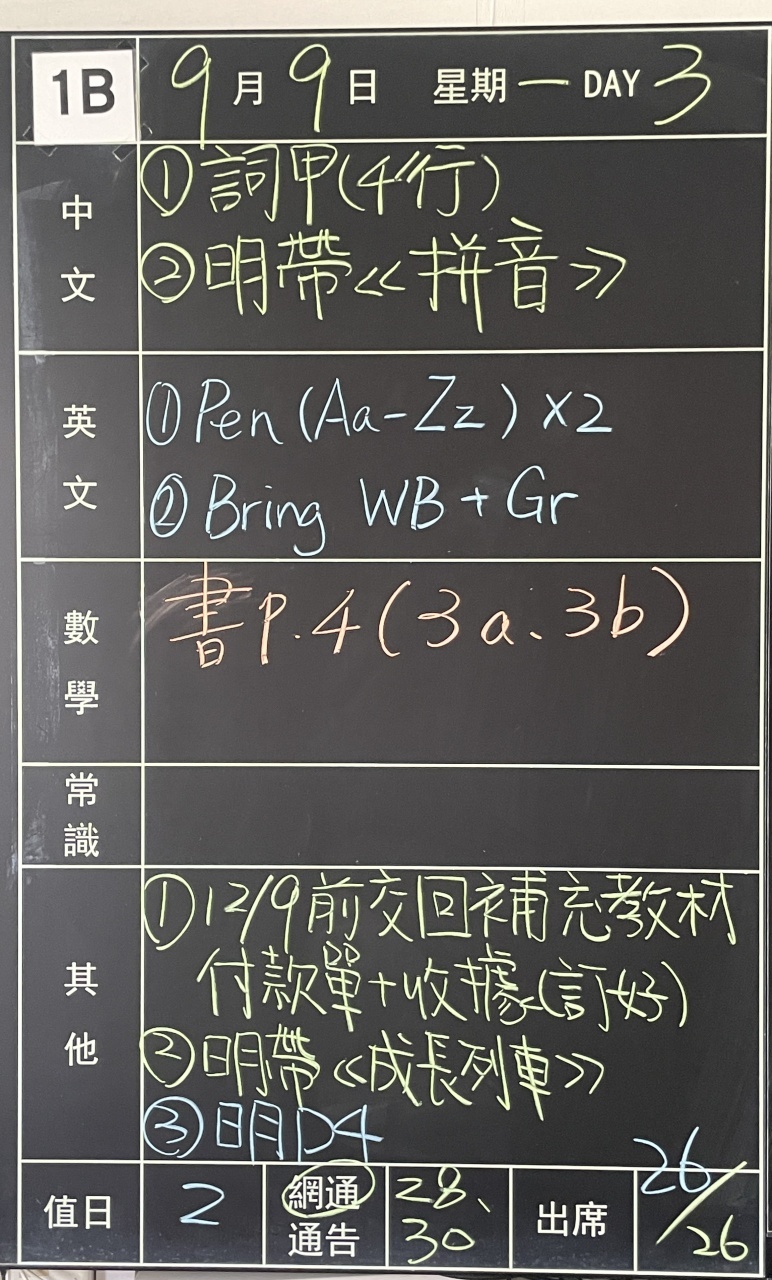 1B 9月9日 星期一 DAY 3
中文
①詞甲(4行)
②明帶《拼音》
英文
①Pen (Aa-Zz) ×2
②Bring WB + Gr
數學
書P.4(3a、3b)
常識
其他
①12/9前交回補充教材
付款單+收據(訂好)
②明帶《成長列車》
③明D4
值日 2 網通 28、 出席 26/26
通告 30